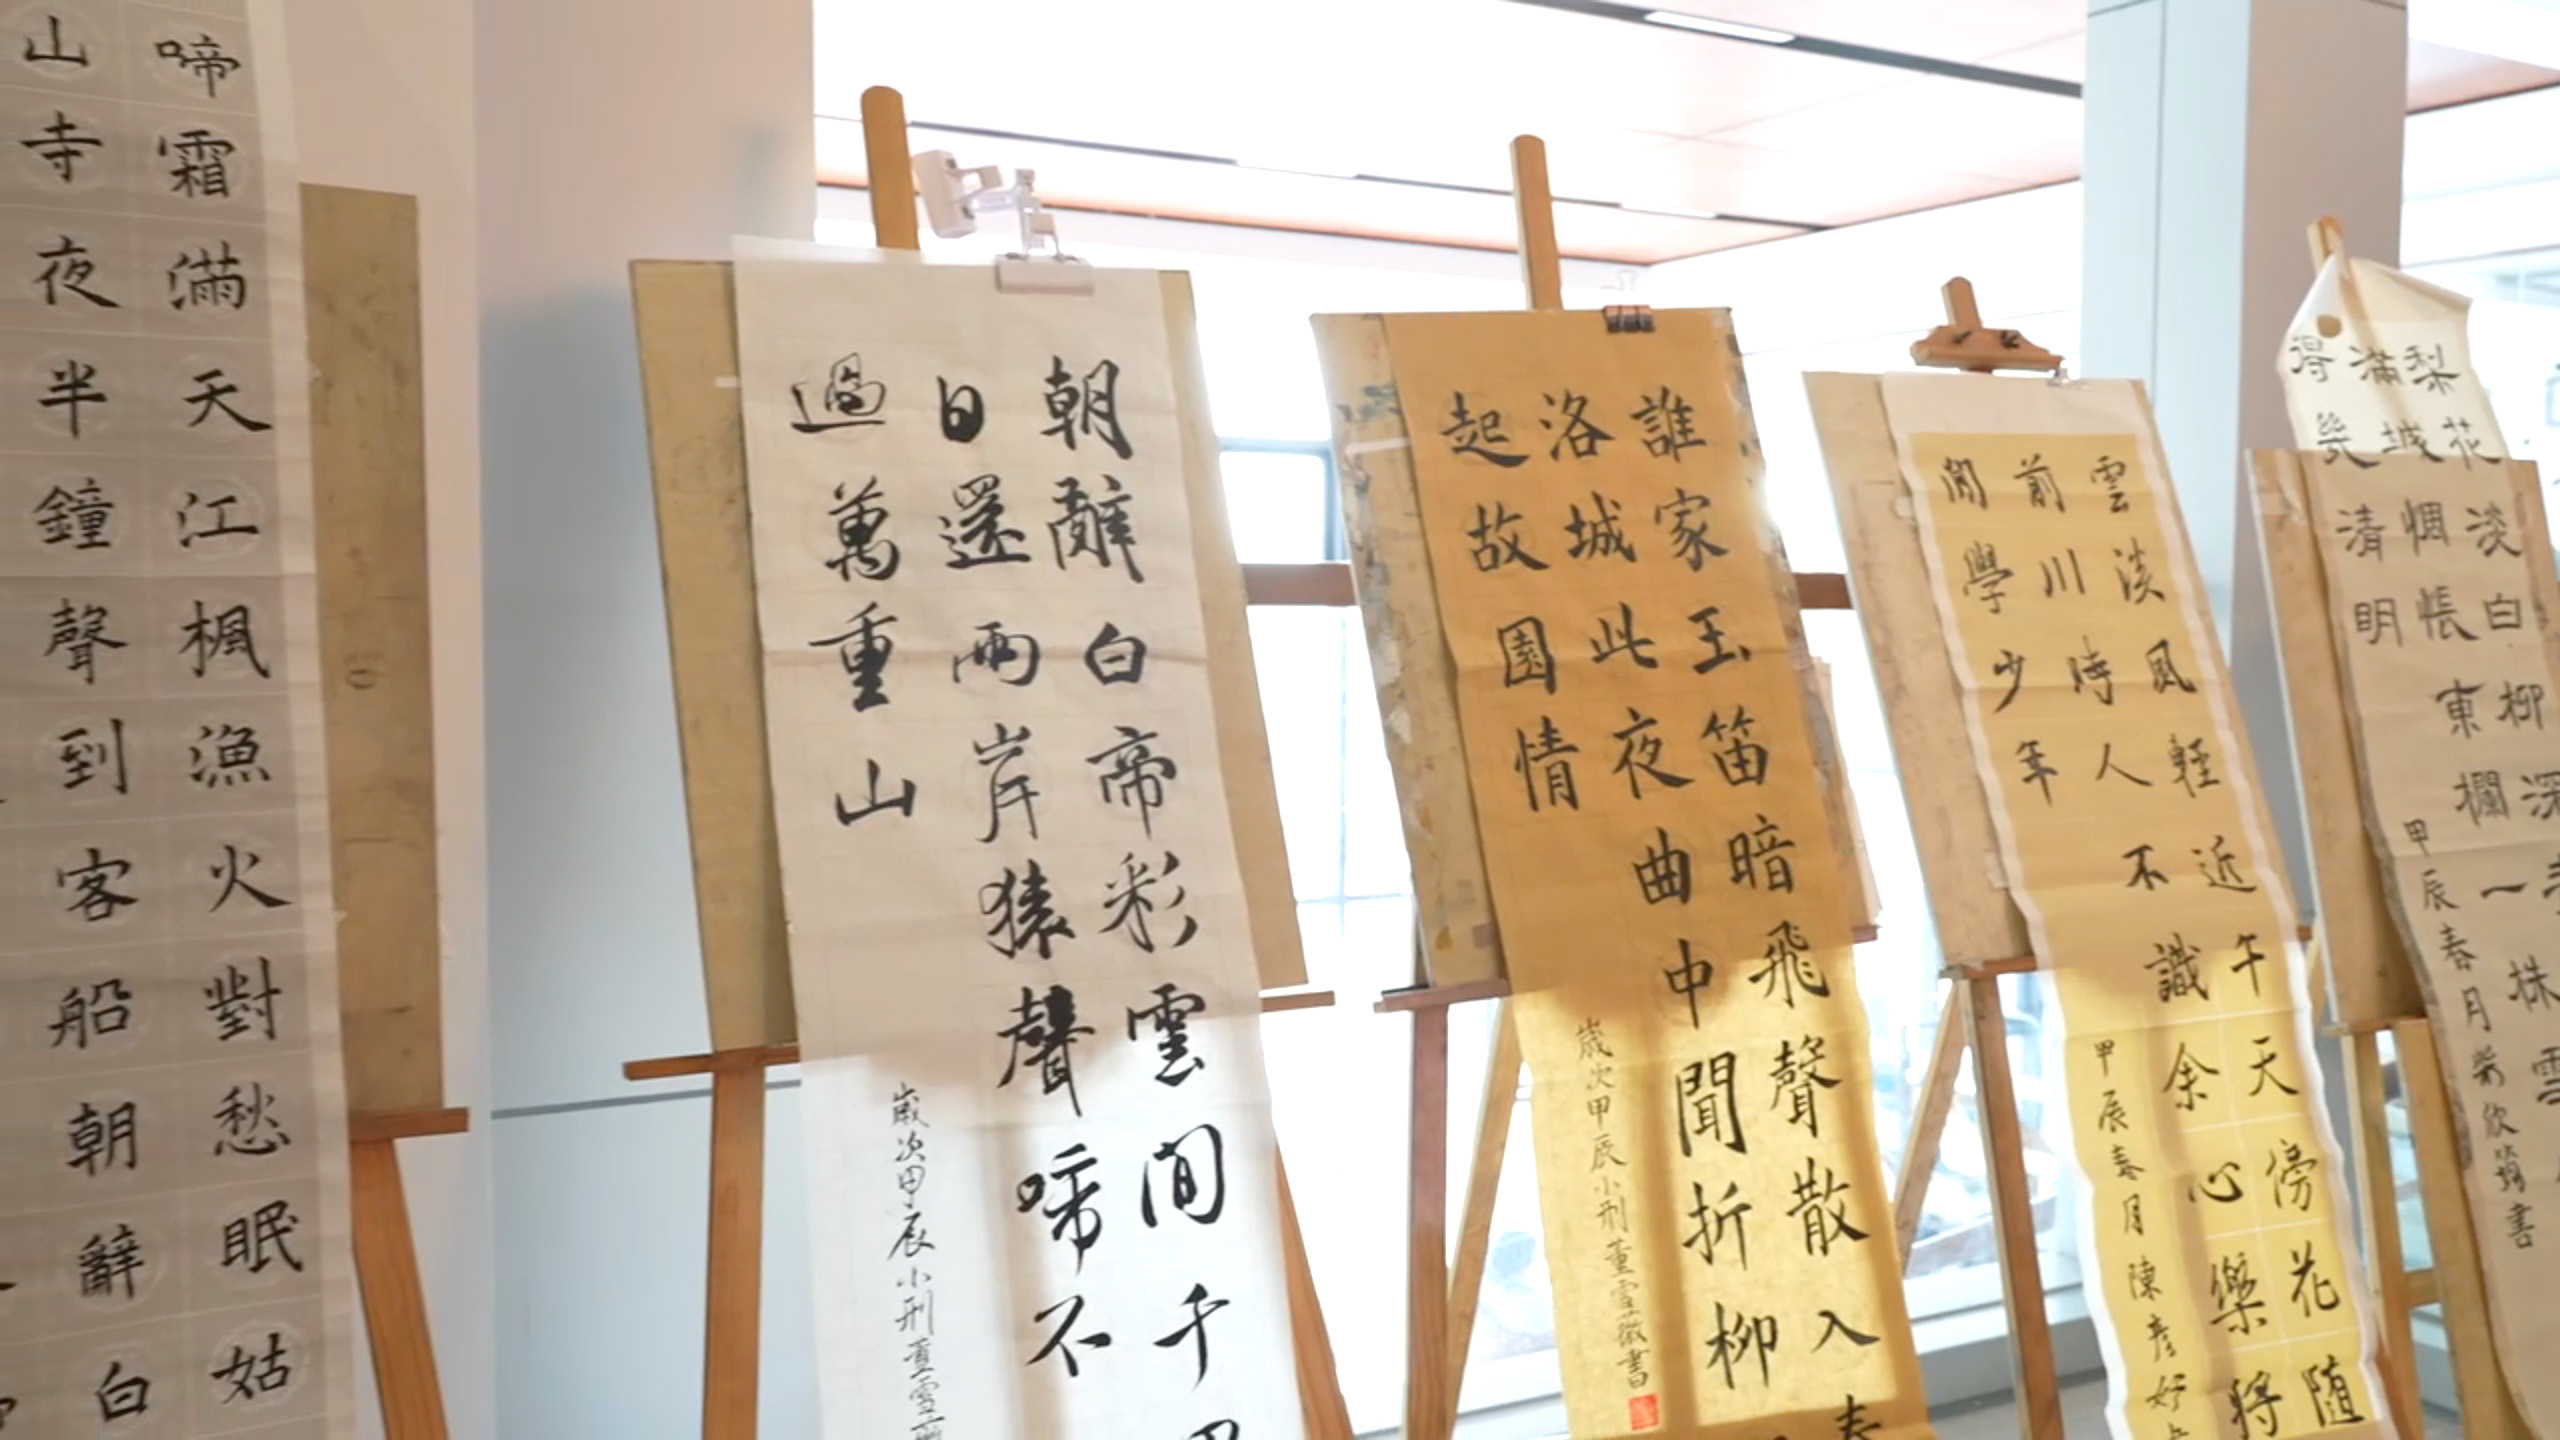 啼霜滿天江楓漁火對愁眠姑
山寺夜半鐘聲到客船朝辭白
朝辭白帝彩雲間千
日還兩岸猿聲啼不
過萬重山
歲次甲辰小刑董雪
誰家玉笛暗飛聲散入春
洛城此夜曲中聞折柳
起故園情
歲次甲辰小刑董雪薇書
雲淡風輕近午天傍花隨
前川時人不識余心樂將
閒學少年
甲辰春月陳彥妤
梨花淡白柳深
滿城惆悵東欄一株雪
得幾清明
甲辰春月柴欣筠書